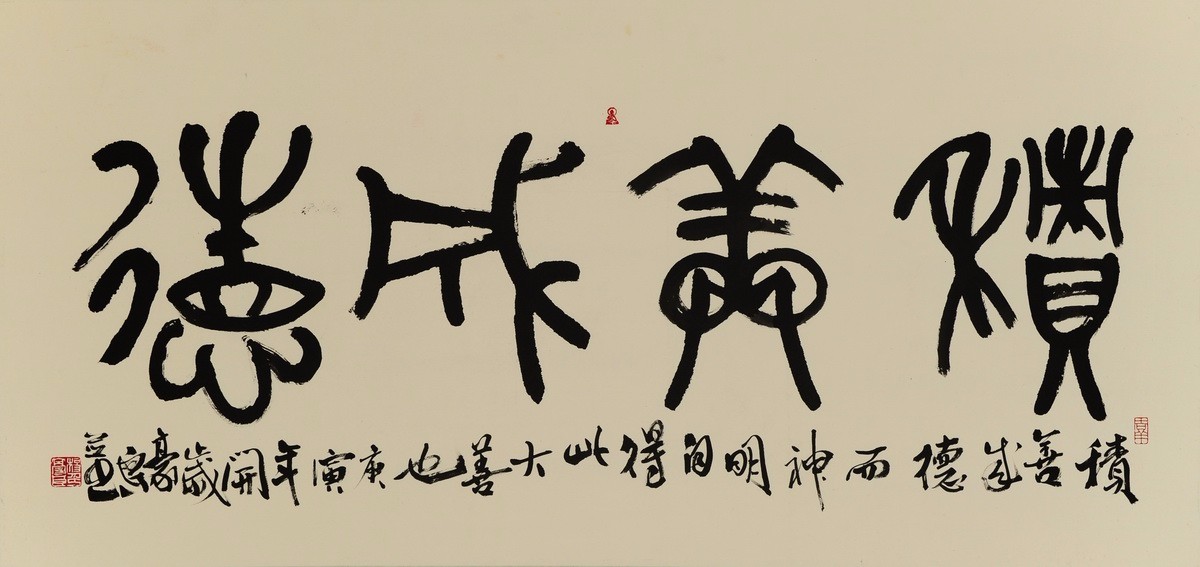 積善成德
積善成德而神明自得此大善也庚寅年開歲豪